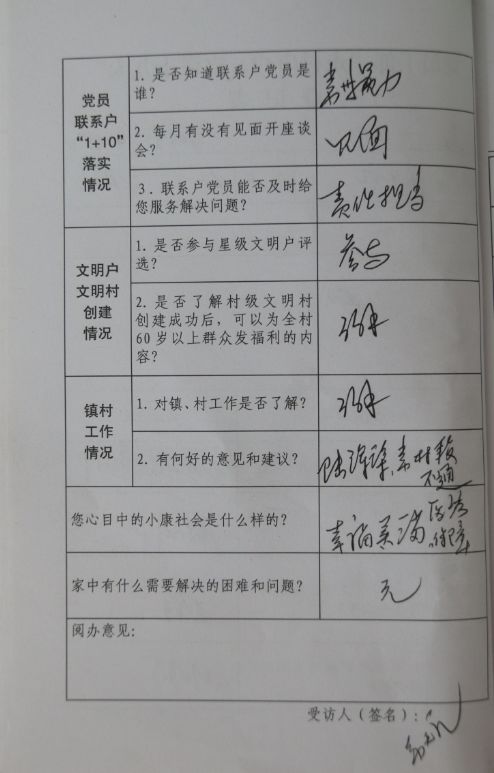 党员
联系户
“1+10”
落实
情况
1. 是否知道联系户党员是
谁？
2. 每月有没有见面开座谈
会？
见面
3. 联系户党员能否及时给
您服务解决问题？
责任担当
文明户
文明村
创建
情况
1. 是否参与星级文明户评
选？
参与
2. 是否了解村级文明村
创建成功后，可以为全村
60岁以上群众发福利的内
容？
了解
镇村
工作
情况
1. 对镇、村工作是否了解？
了解
2. 有何好的意见和建议？
您心目中的小康社会是什么样的？
幸福美满
家中有什么需要解决的困难和问题？
无
阅办意见：
受访人（签名）：